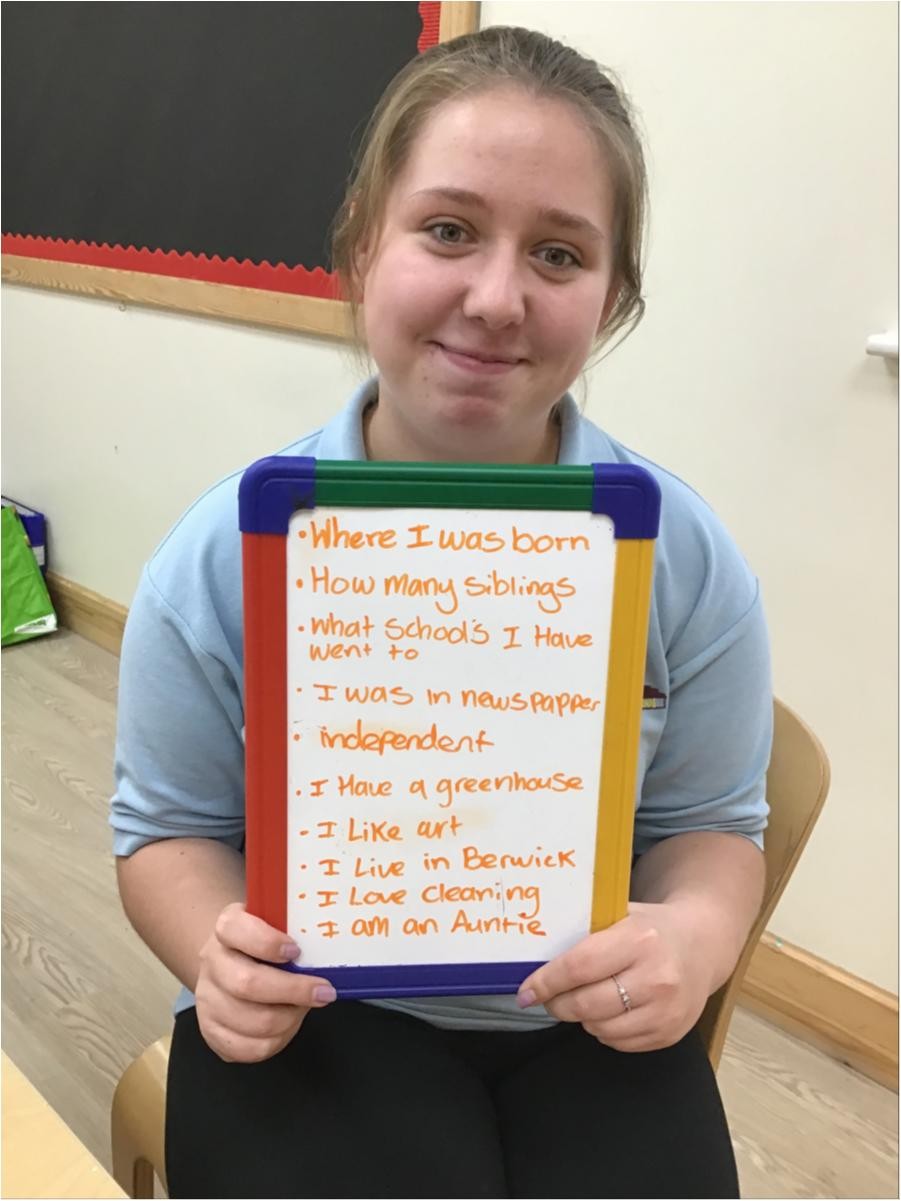 • Where I was born
• How many siblings
• What School's I Have
went to
• I was in newspapper
• independent
• I Have a greenhouse
• I Like art
• I Live in Berwick
• I Love cleaning
• I am an Auntie